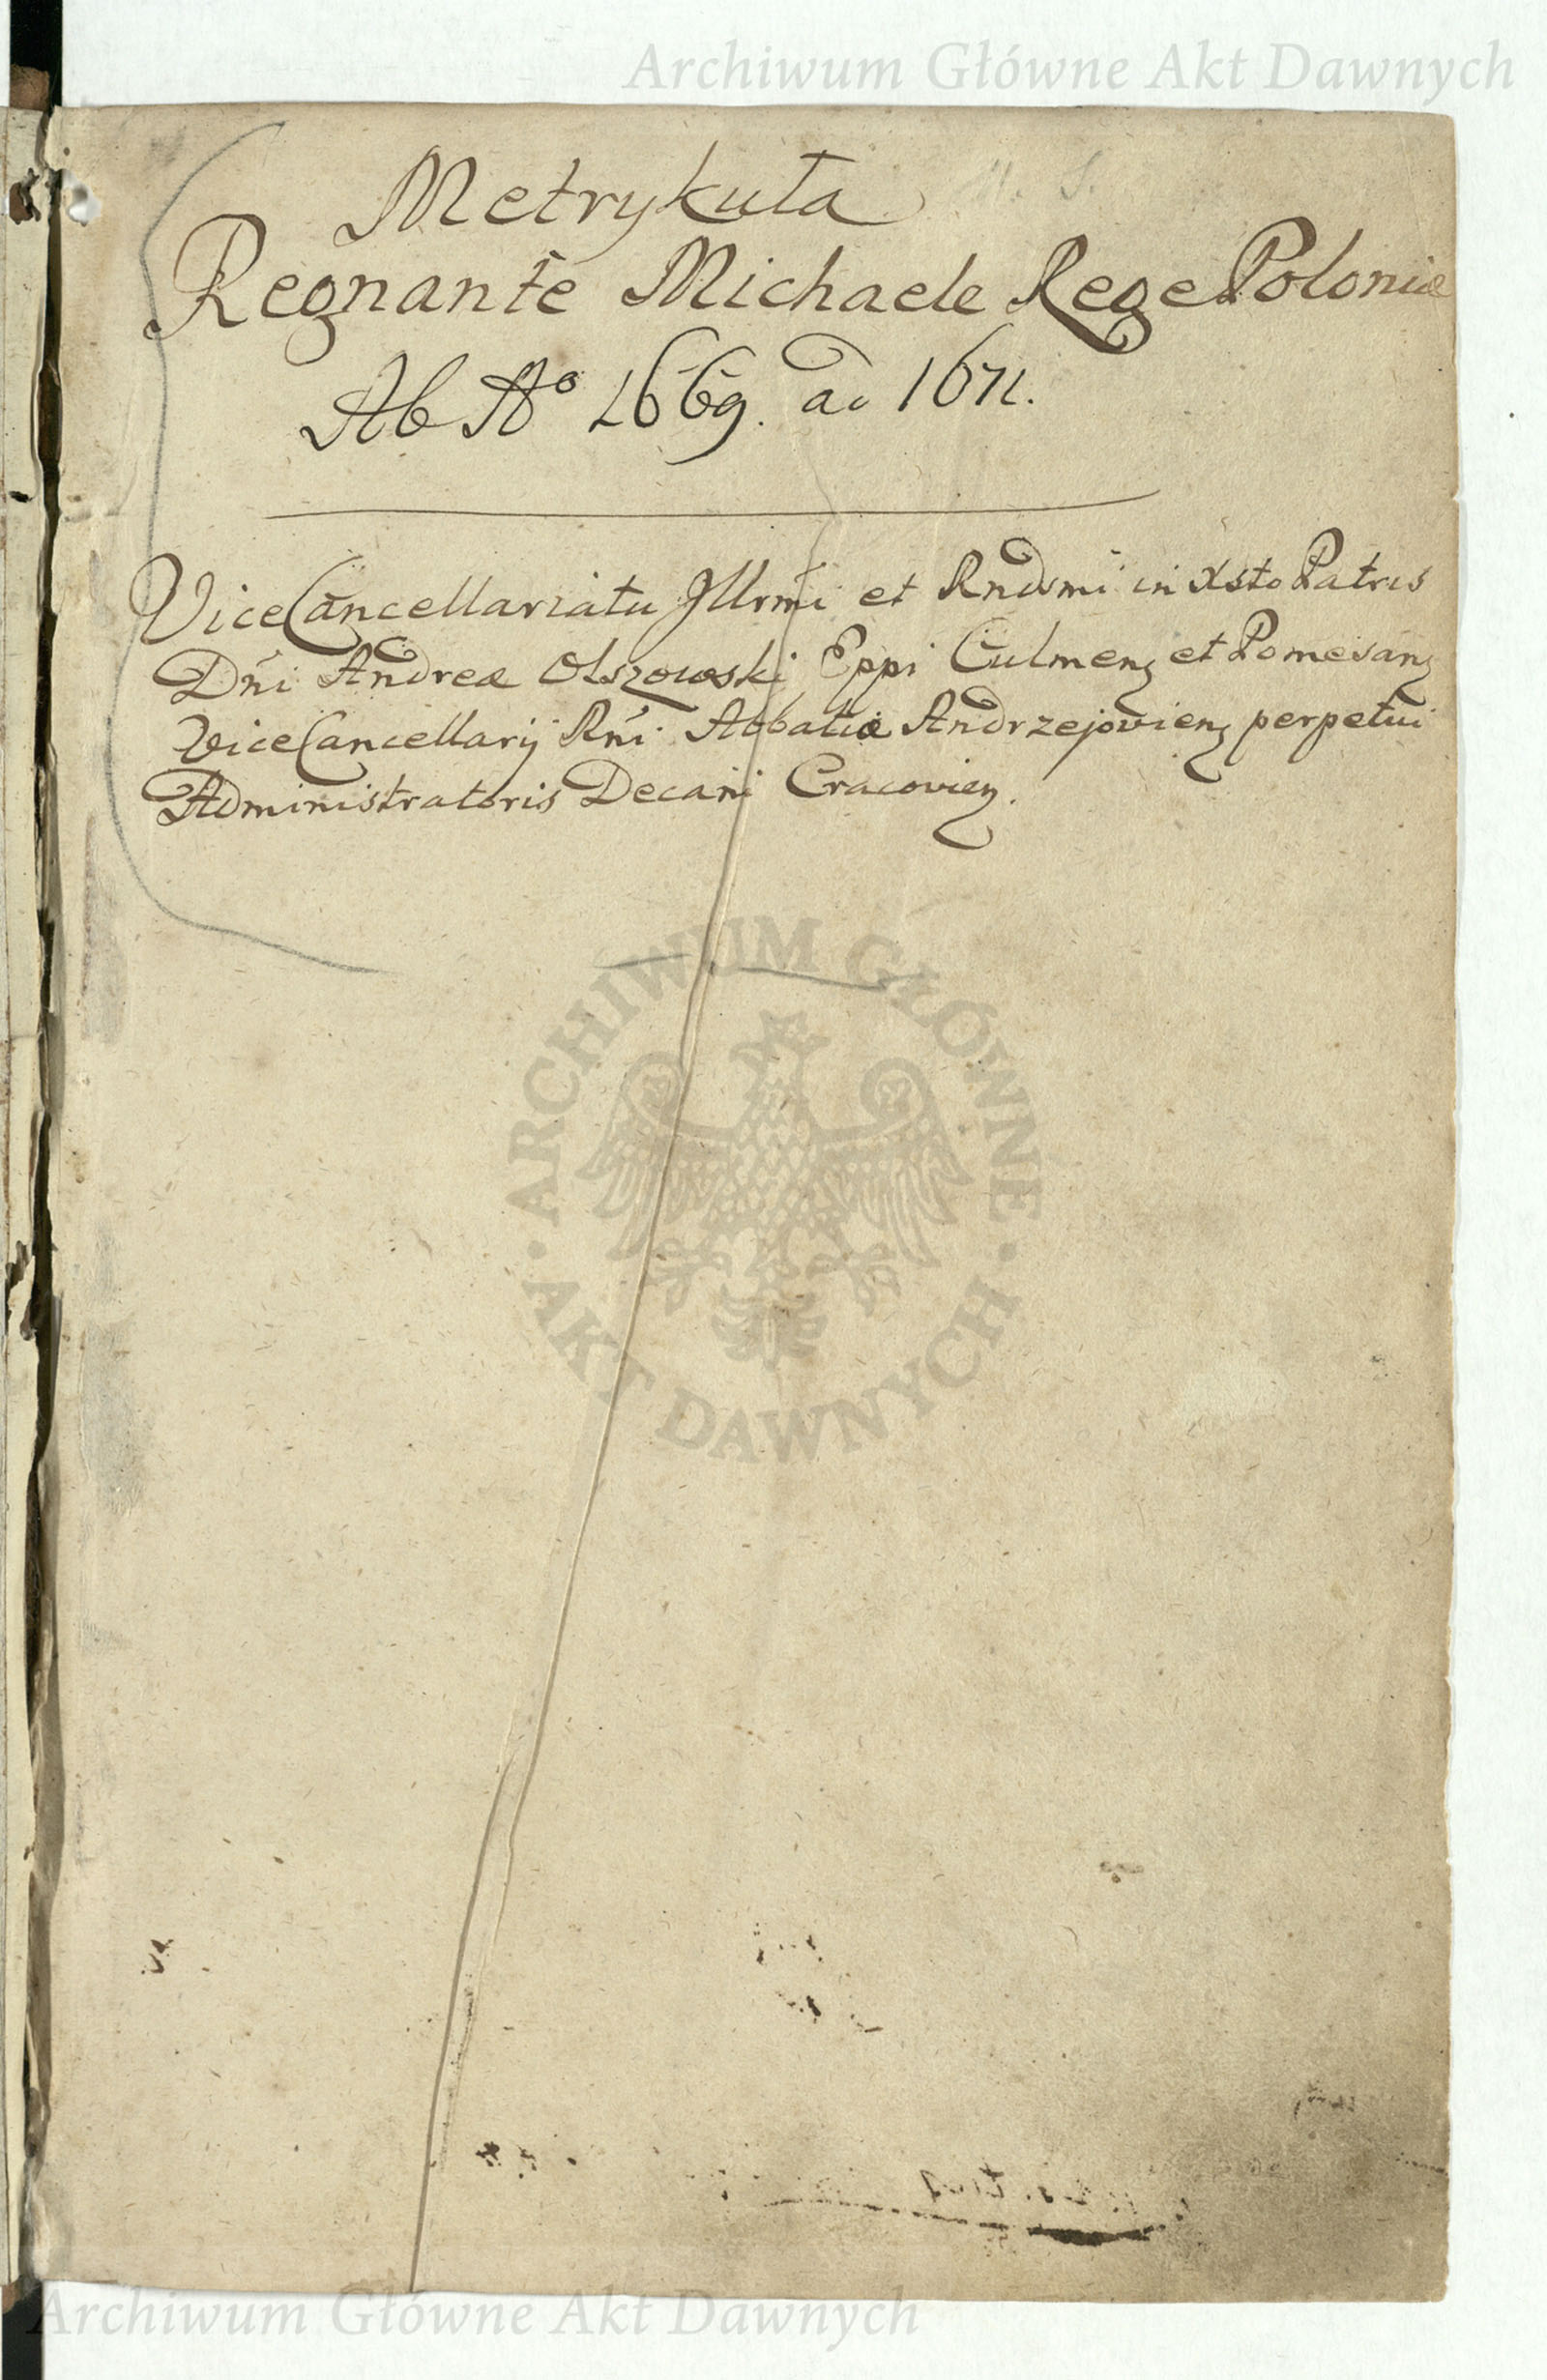 Archiwum Główne Akt Dawnych
Metrykuła
Regnante Michaele Rege Poloniæ
Ab Aº 1669. ad 1671.
ViceCancellariatu Illrmi et Rndsmi in Xsto Patris
Dńi Andreæ Olszowski Eppi Culmenʒ et Pomesanʒ
ViceCancellarij Rńi Abbatiæ Andrzejovienʒ perpetui
Administratoris Decani Cracovienʒ.
ARCHIWUM GŁÓWNE
AKT DAWNYCH
Archiwum Główne Akt Dawnych